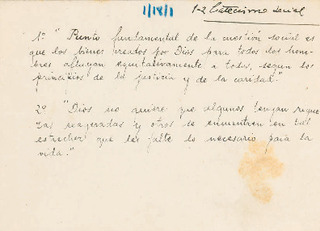 1/18/1
1-2 Catecismo social
1º " Punto fundamental de la cuestión social es
que los bienes creados por Dios para todos los hom-
bres afluyan equitativamente a todos, segun los
principios de la justicia y de la caridad."
2º "Dios no quiere que algunos tengan rique-
zas exageradas y otros se encuentren en tal
estrechez que les falte lo necesario para la
vida."